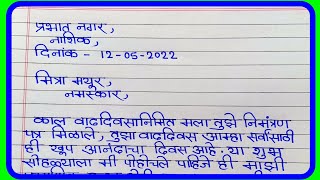 प्रभात नगर,
नाशिक,
दिनांक - 12-05-2022
मित्रा मयूर,
नमस्कार,
काल वाढदिवसानिमित मला तुझे निमंत्रण
पत्र मिळाले, तुझा वाढदिवस आम्हा सर्वांसाठी
ही खूप आनंदाचा दिवस आहे. या शुभ
सोहळ्याला मी पोहोचले पाहिजे ही माझी